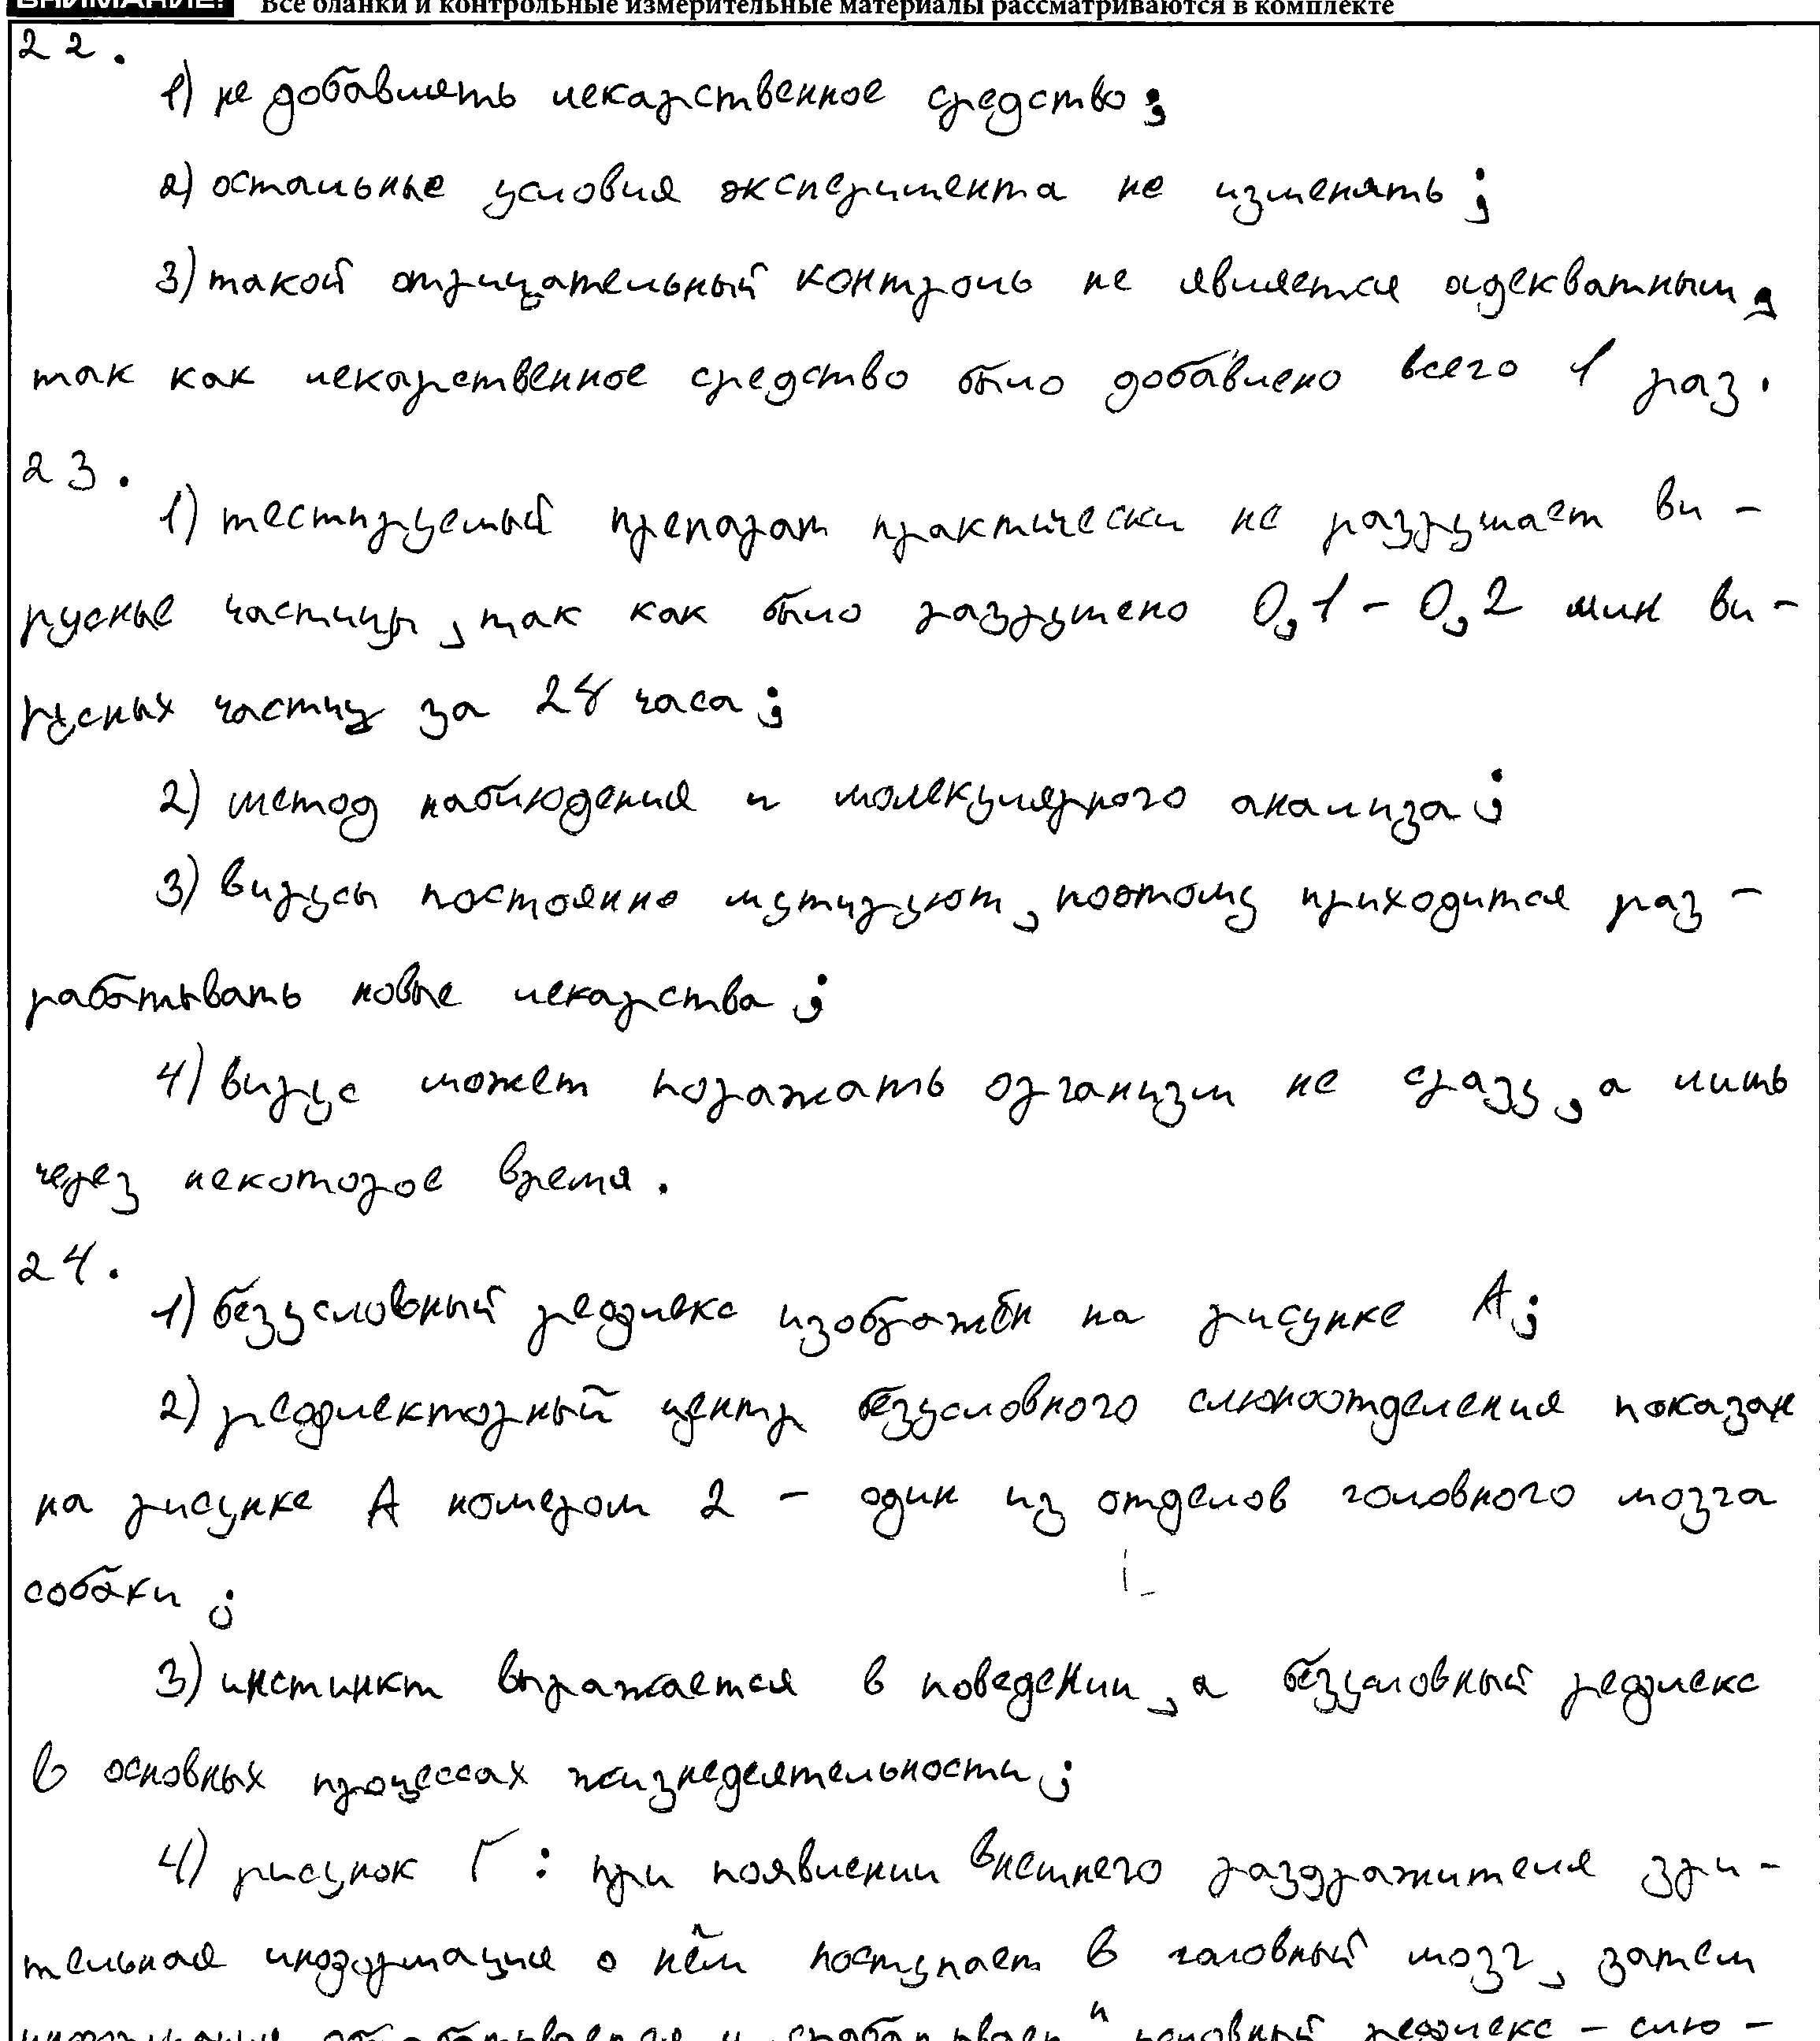 ВНИМАНИЕ! Все бланки и контрольные измерительные материалы рассматриваются в комплекте
22.
1) не добавлять лекарственное средство;
2) остальные условия эксперимента не изменять;
3) такой отрицательный контроль не является адекватным,
так как лекарственное средство было добавлено всего 1 раз.
23.
1) тестируемый препарат практически не разрушает ви-
русные частицы, так как было разрушено 0,1 - 0,2 млн ви-
русных частиц за 24 часа;
2) метод наблюдения и молекулярного анализа;
3) вирусы постоянно мутируют, поэтому приходится раз-
рабатывать новые лекарства;
4) вирус может поражать организм не сразу, а лишь
через некоторое время.
24.
1) безусловный рефлекс изображён на рисунке А;
2) рефлекторный центр безусловного слюноотделения показан
на рисунке А номером 2 - один из отделов головного мозга
собаки;
3) инстинкт выражается в поведении, а безусловный рефлекс
в основных процессах жизнедеятельности;
4) рисунок Г: при появлении внешнего раздражителя зри-
тельная информация о нём поступает в головный мозг, затем
информация обрабатывается и условный рефлекс - слю-